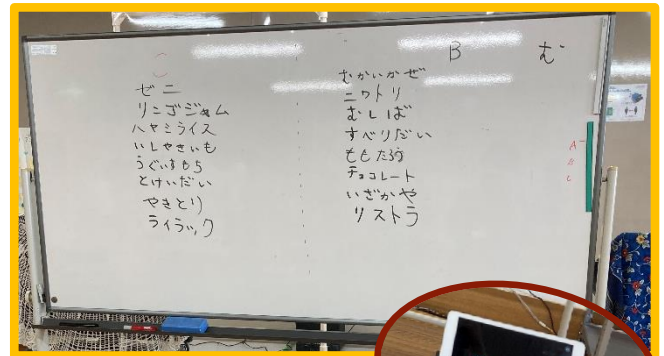 B
む
ゼニ
リンゴジャム
ハヤシライス
いしやきいも
うぐいすもち
とけいだい
やきとり
ライラック
むかいかぜ
ニワトリ
むしば
すべりだい
ももたろう
チョコレート
いざかや
リストラ
A
B
C